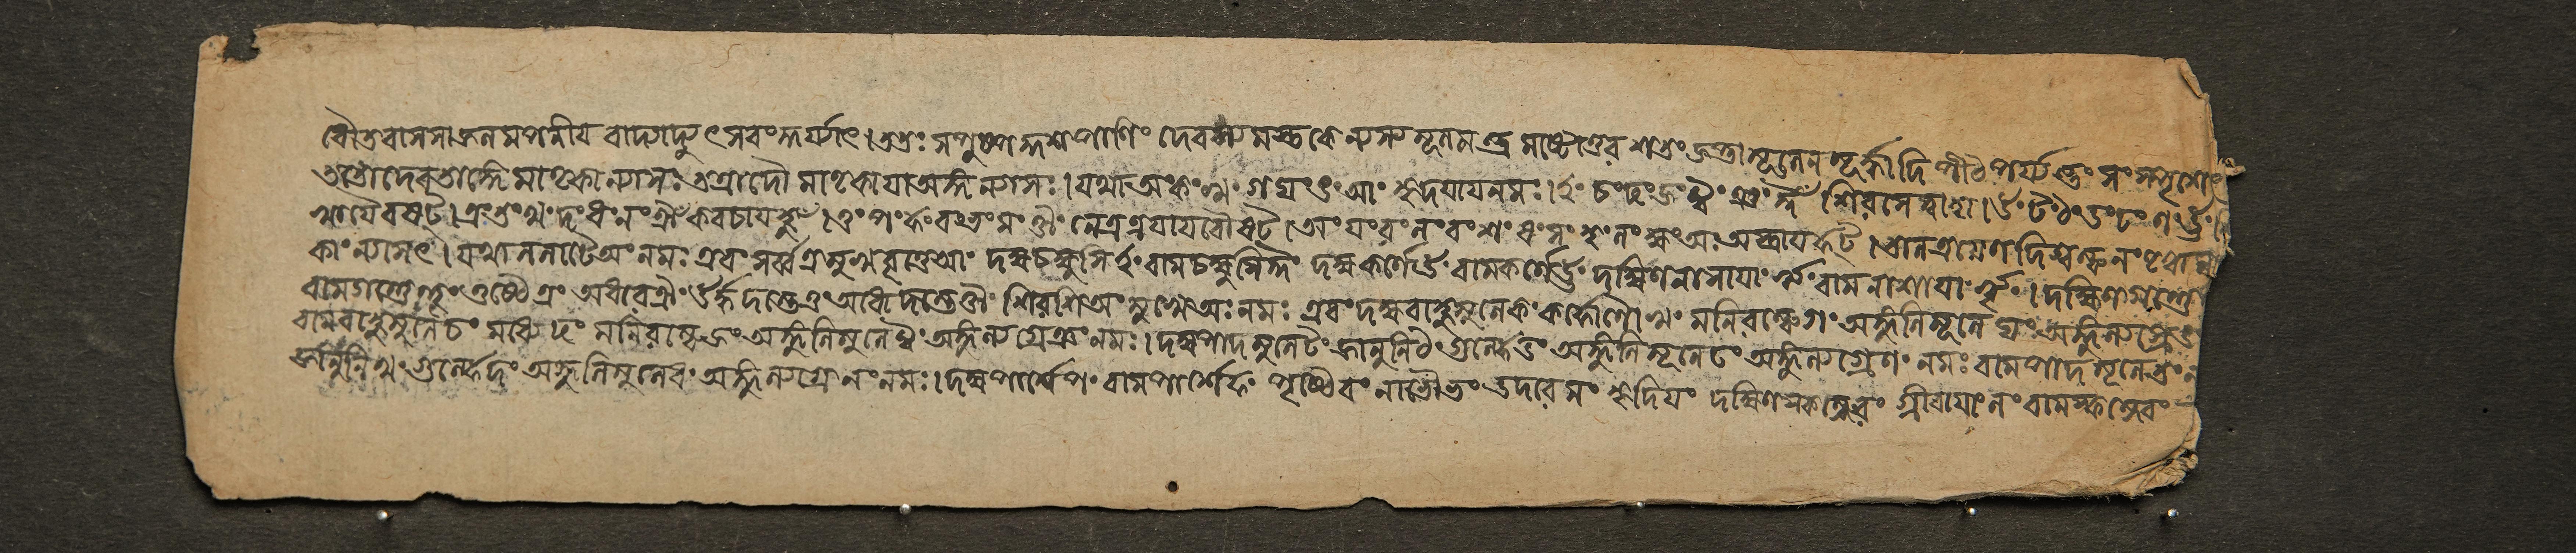 ধৌতবাসসাজনমপনীয় বাদ্যাদ্যুৎসবং কুর্য্যাৎ। ততঃ সপুষ্পকুশপাণিং দেবস্য মস্তকে ন্যস্য মূলমন্ত্র মষ্টোত্তর শতং জপ্ত্বা মূলেন মূর্দ্ধাদি পীঠ পর্য্যন্তং সংস্পৃশেৎ
ততো দেবতাঙ্গে মাতৃকান্যাসঃ তত্রাদৌ মাতৃকায়া অঙ্গন্যাসঃ। যথা অং কং খং গং ঘং ঙং আং হৃদয়ায় নমঃ। ইং চং ছং জং ঝং ঞং ঈং শিরসে স্বাহা। উং টং ঠং ডং ঢং ণং ঊং
খায়ৈ বষট্। এং তং থং দং ধং নং ঐং কবচায় হুঁ। ওং পং ফং বং ভং মং ঔং নেত্রত্রয়ায় বৌষট্। অং যং রং লং বং শং ষং সং হং লং ক্ষং অঃ অস্ত্রায় ফট্।
কাং ন্যাসেৎ। যথা ললাটে অং নমঃ এবং সর্ব্বত্র মুখবৃত্তে আং দক্ষচক্ষুসি ইং বামচক্ষুসি ঈং দক্ষকর্ণে উং বামকর্ণে ঊং দক্ষিণনাসায়াং ঋং বামনাসায়াং ৠং। দক্ষিণগণ্ডে
বামগণ্ডে ৡং ওষ্ঠে এং অধরে ঐং ঊর্দ্ধদন্তে ওং অধোদন্তে ঔং শিরশি অং মুখে অঃ নমঃ এবং দক্ষবাহুমূলে কং কূর্পরে খং মনিবন্ধে গং অঙ্গুলিমূলে ঘং অঙ্গুল্যগ্রে ঙং
বামবাহুমূলে চং মধ্যে ছং মনিবন্ধে জং অঙ্গুলিমূলে ঝং অঙ্গুল্যগ্রে ঞং নমঃ। দক্ষপাদমূলে টং জানুনি ঠং গুল্ফে ডং অঙ্গুলিমূলে ঢং অঙ্গুল্যগ্রে ণং নমঃ বামপাদমূলে তং
জানুনি থং গুল্ফে দং অঙ্গুলিমূলে ধং অঙ্গুল্যগ্রে নং নমঃ। দক্ষপার্শ্বে পং বামপার্শ্বে ফং পৃষ্ঠে বং নাভৌ ভং উদরে মং হৃদি যং দক্ষিণস্কন্ধে রং গ্রীবায়াং লং বামস্কন্ধে বং